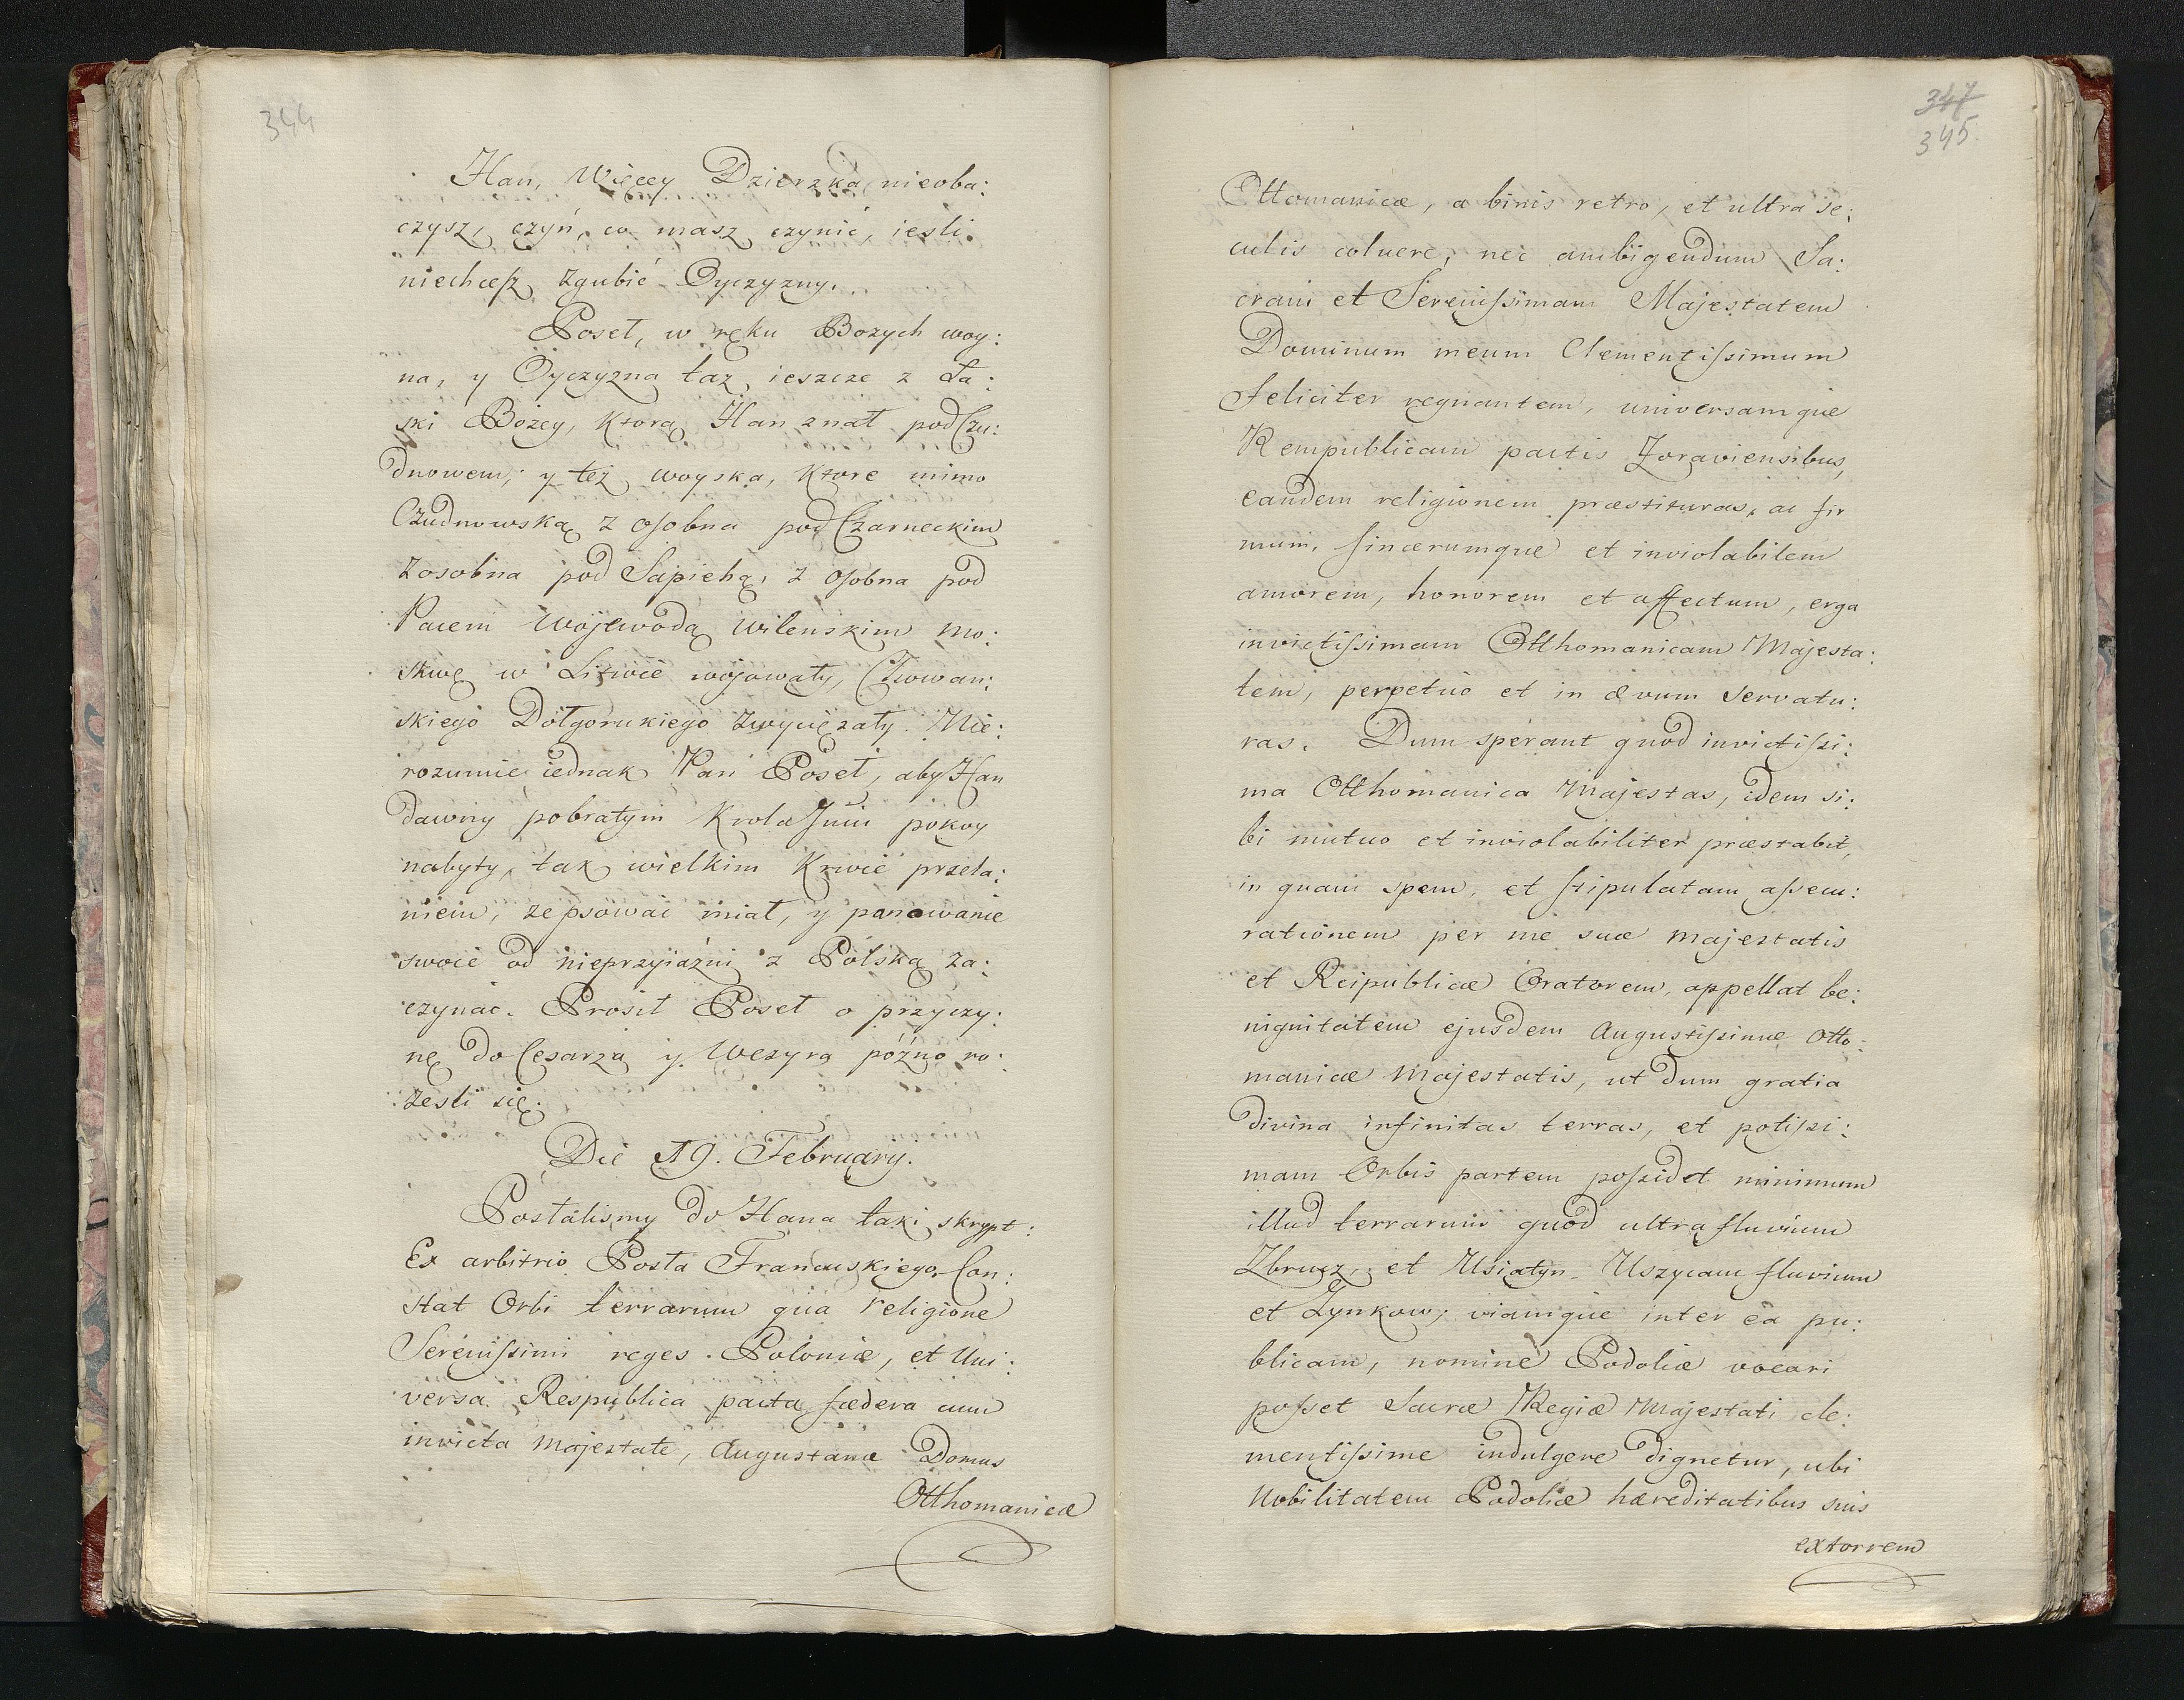 344
Han, Więcey Dzierzka nieoba:
czysz, czyń, co masz czynić, iesli
niechcesz zgubić Oyczyzny.
Poseł, w ręku Bozych woy:
na, y Oyczyzna taz, ieszcze z Ła:
ski Bożey, ktorą Han znał pod Czu:
dnowem; y też woyska, ktore mimo
Czudnowską z osobna pod Czarneckim
zosobna pod Sapiehą, z osobna pod
Pacem Wojewodą Wilenskim Mo:
skwę w Litwie wojowały, Chowan:
skiego Dołgorukiego zwyciężały. Nie:
rozumie iednak Pan Poseł, aby Han
dawny pobratym Krola Jmci pokoy
nabyty, tak wielkim Krwie przela:
niem, zepsować miał, y panowanie
swoie od nieprzyiaźni z Polską za:
czynać. Prosił Poseł o przyczy:
nę do Cesarza y Wezyra późno ro:
zesli się.
Die 19. February.
Posłalismy do Hana taki skrypt:
Ex arbitrio Posła Francuskiego. Con:
stat Orbi terrarum qua religione
Serenissimi reges Poloniæ, et Uni:
versa Respublica pacta fœdera cum
invicta Majestate, Augustanæ Domus
Otthomanicæ
347
345
Ottomanicæ, a binis retro, et ultra se:
culis coluere, nec ambigendum Sa:
cram et Serenissimam Majestatem
Dominum meum Clementissimum
feliciter regnantem, universamque
Rempublicam pactis Zoraviensibus,
eandem religionem præstituras, ac fir
mum, sincerumque et inviolabilem
amorem, honorem et affectum, erga
invictissimam Otthomanicam Majesta:
tem, perpetuo et in ævum servatu:
ras. Dum sperant quod invictissi:
ma Otthomanica Majestas, idem si:
bi mutuo et inviolabiliter præstabit,
in quam spem, et stipulatam assecu:
rationem per me suæ majestatis
et Reipublicæ Oratorem, appellat be:
nignitatem ejusdem Augustissimæ Otto:
manicæ Majestatis, ut dum gratia
divina infinitas terras, et potissi:
mam Orbis partem possidet minimum
illud terrarum quod ultra fluvium
Zbrucz, et Usiatyn Uszycam fluvium
et Zynkow, viamque inter ea pu:
blicam, nomine Podoliæ vocari
posset Sacræ Regiæ Majestati cle:
mentissime indulgere dignetur, ubi
Nobilitatem Podoliæ hæreditatibus suis
extorrem